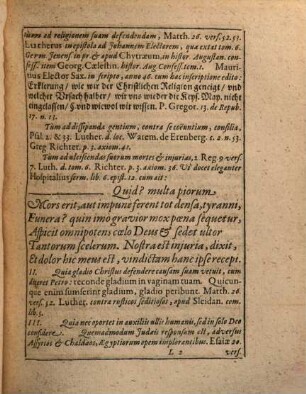 tiuno ad religionem suam defendendam, Matth. 26. vers. 52. 53.
Lutherus in epistola ad Johannem Electorem, quæ extat tom. 6.
German. Jenens. in pr. & apud Chytræum, in histor. Augustan. con-
fess. item Georg. Cælestin. histor. Aug. Confess. tom. 1. Mauri-
tius Elector Sax. in scripto, anno 46. cum hac inscriptione edito:
Erklerung / wie wir der Christlichen Religion geneigt / vnd
welcher Vrsach halber / wir vns wider die Keys. May. nicht
eingelassen / &c. vnd wie wol wir wissen. P. Gregor. 13. de Repub.
17. n. 13.
Tum ad dissipanda gentium, contra se coëuntium, consilia,
Psal. 2. & 33. Luther. d. loc. Warem. de Erenberg. c. 2. n. 53.
Gteg Richter. p. 3. axiom. 41.
Tum ad ulciscendas suorum mortes & injurias, 1. Reg. 9. vers.
7. Luth. d. tom. 6. Richter. p. 3. axiom. 36. Ut docet eleganter
Hospitalius serm. lib. 6. epist. 12. cum ait:
Quid? multa piorum
Mors erit, aut impune ferent tot densa, tyranni,
Funera? quin imo gravior mox pœna sequetur,
Aspicit omnipotens cœlo Deus & sedet ultor
Tantorum scelerum. Nostra est injuria, dixit,
Et dolor hic meus est, vindictam hanc ipse recepi.
II. Quia gladio Christus defendere causam suam vetuit, cum
diceret Petro: reconde gladium in vaginam tuam. Quicun-
que enim sumserint gladium, gladio peribunt. Matth. 26.
vers. 52. Luther. contra rusticos seditiosos, apud Sleidan. com.
lib. 5.
III. Quia nec oportet in auxiliis ullis humanis, sed in solo Deo
considere. Quemadmodum Judæis responsum est, adversus
Assyrios & Chaldæos, Ægyptiorum opem implorantibus. Esaiæ 20.
L 2 vers.